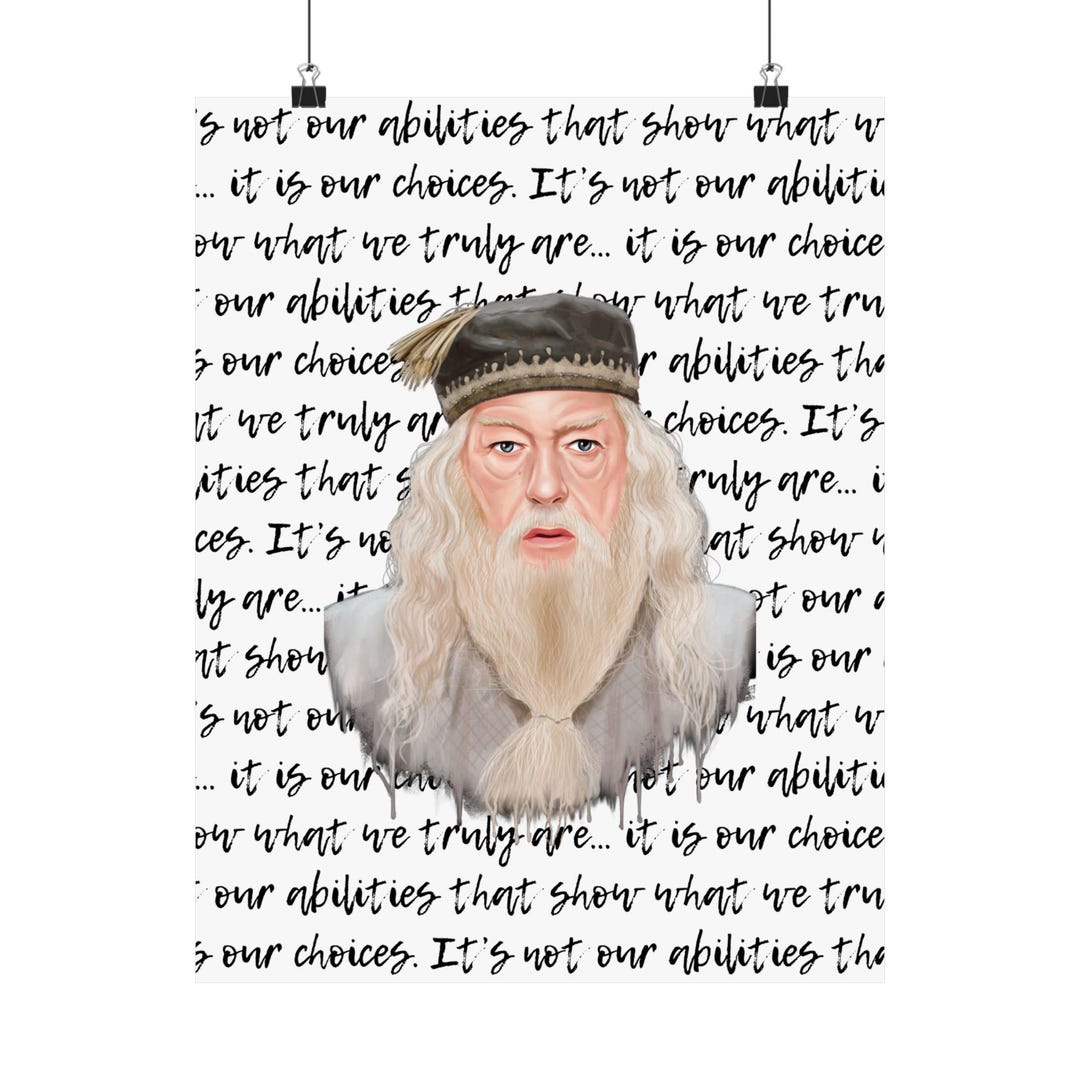 's not our abilities that show what w
... it is our choices. It's not our abiliti
ow what we truly are... it is our choice
our abilities that show what we tru
s our choices r abilities tha
at we truly ar choices. It's
ities that s truly are... i
ces. It's no at show w
ly are... it ot our a
at show is our
's not our what w
... it is our cho not our abiliti
ow what we truly are... it is our choice
our abilities that show what we tru
s our choices. It's not our abilities tha